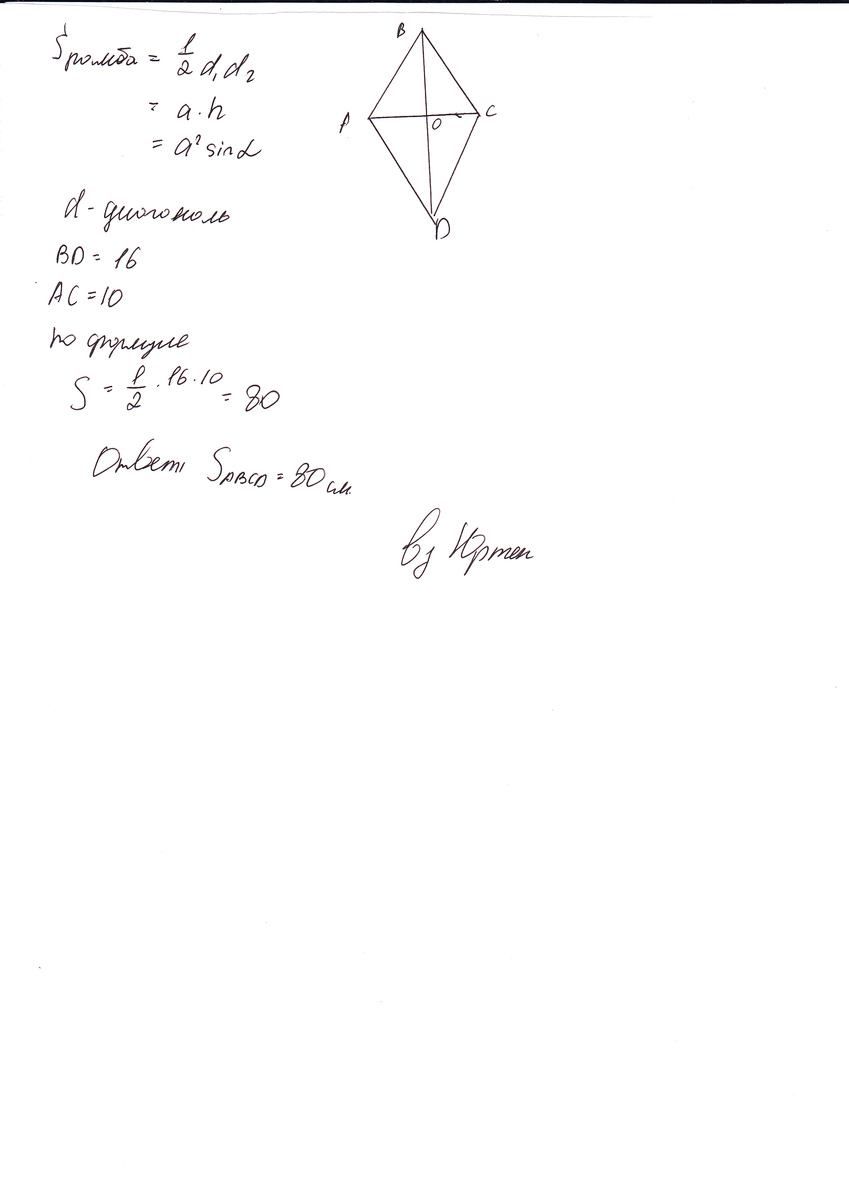 Sромба = 1/2 d₁d₂
= a·h
= a² sinα
B
A
O
C
D
d - диагональ
BD = 16
AC = 10
по формуле
S = 1/2 · 16 · 10 = 80
Ответ: SABCD = 80 см.
by